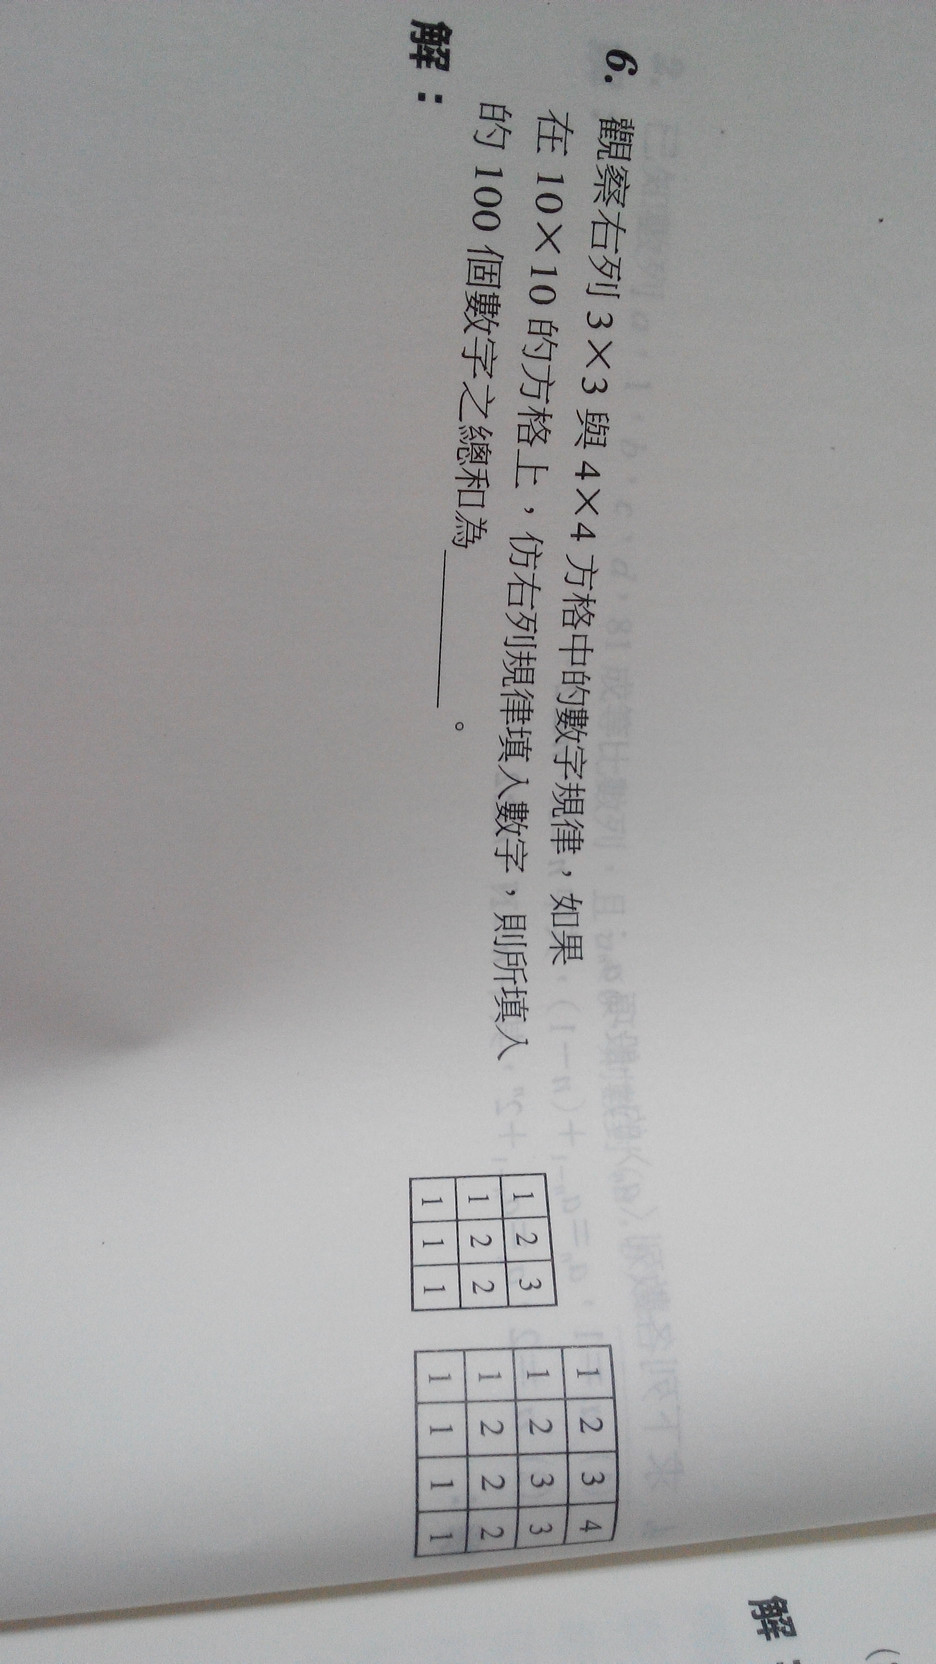 6. 觀察右列 3×3 與 4×4 方格中的數字規律，如果
在 10×10 的方格上，仿右列規律填入數字，則所填入
的 100 個數字之總和為＿＿＿＿。
1 2 3
1 2 2
1 1 1
1 2 3 4
1 2 3 3
1 2 2 2
1 1 1 1
解：
解：